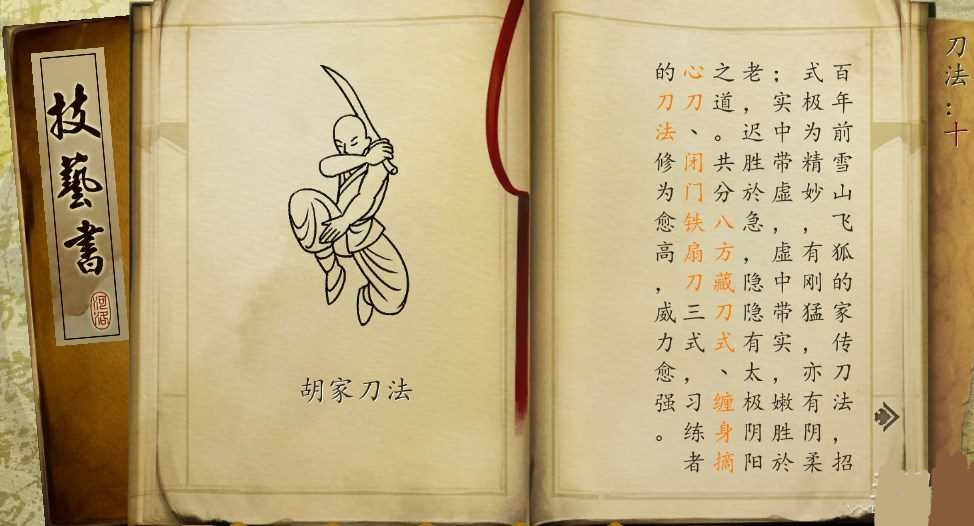 技藝書
河洛
胡家刀法
百年前雪山飞狐的家传刀法，招
式极为精妙，有刚猛，亦有阴柔
；实中带虚，虚中带实，嫩胜於
老，迟胜於急，隐隐有太极阴阳
之道。共分八方藏刀式、缠身摘
心刀、闭门铁扇刀三式，习练者
的刀法修为愈高，威力愈强。
刀法：十